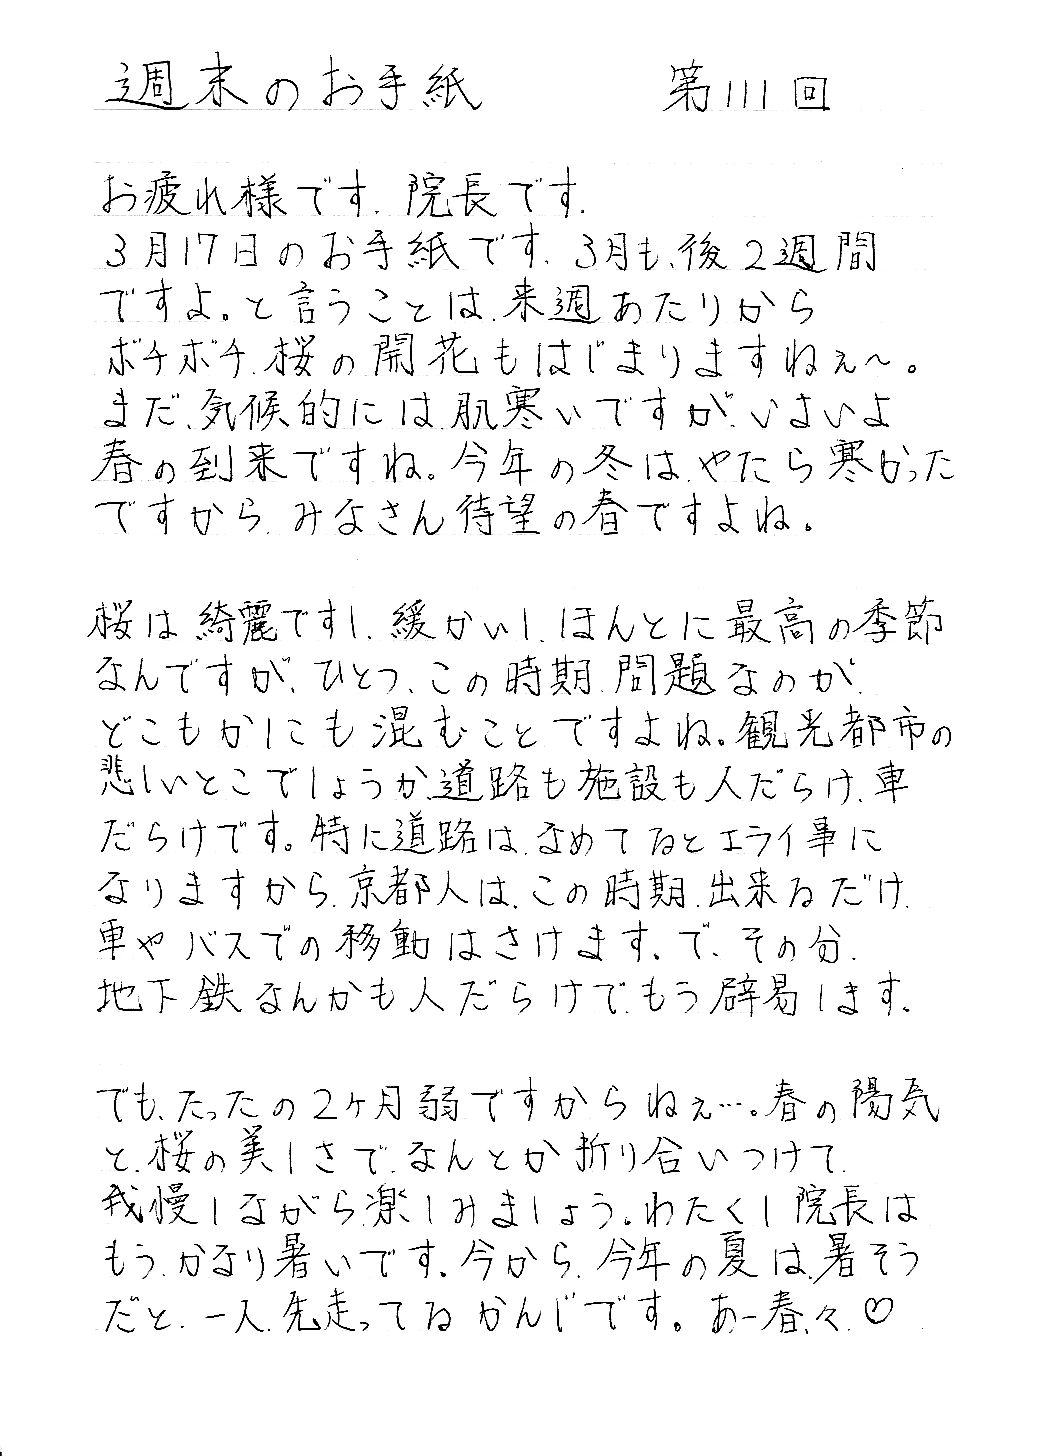 週末のお手紙 第111回
お疲れ様です、院長です、
3月17日のお手紙です、3月も、後2週間
ですよ。と言うことは、来週あたりから
ボチボチ、桜の開花もはじまりますねぇ〜。
まだ、気候的には肌寒いですが、いよいよ
春の到来ですね。今年の冬は、やたら寒かった
ですから、みなさん待望の春ですよね。
桜は綺麗ですし、緩かいし、ほんとに最高の季節
なんですが、ひとつ、この時期、問題なのが、
どこもかしこにも混むことですよね。観光都市の
悲しいとこでしょうか、道路も施設も人だらけ、車
だらけです。特に道路は、なめてるとエライ事に
なりますから、京都人は、この時期、出来るだけ、
車やバスでの移動はさけます、で、その分、
地下鉄なんかも人だらけで、もう辟易します、
でも、たったの2ヶ月弱ですからねぇ…。春の陽気
と、桜の美しさで、なんとか折り合いつけて、
我慢しながら、楽しみましょう。わたくし院長は
もう、かなり暑いです、今から、今年の夏は、暑そう
だと、一人、先走ってるかんじです。あー春、々、♡